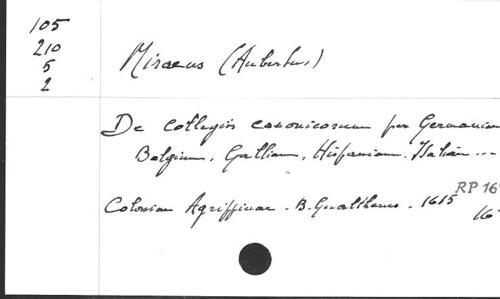 105
210
5
2
Miraeus (Aubertus)
De Collegiis canonicorum per Germaniam
Belgium, Galliam, Hispaniam, Italiam ...
RP 16
Coloniae Agrippinae . B. Gualtherus . 1615
16